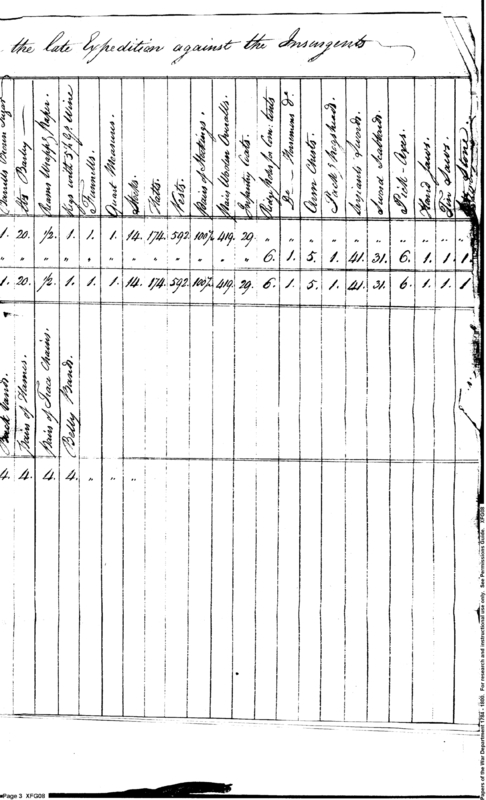 the late Expedition against the Insurgents
Barrells Brown Sugar
lbs Barley
Reams Wrapg. Paper.
Kegs with 5 1/2 gs Wine
Funnells.
Quart Measures.
Hatts.
Vests.
Pairs of Stockings.
Pairs Woolen Overalls.
Infantry Coats.
Do - Horsemens do
Arm Chests.
Serjeants Swords.
Sword Scabbards.
Pick-Axes.
Hand Saws.
Stone
1. 20. 1/2 1. 1. 1. 14. 174. 592. 1007. 419. 29. " " " " " " " " " "
" " " " " " " " " " " " 6. 1. 5. 1. 41. 31. 6. 1. 1. 1
1. 20. 1/2 1. 1. 1. 14. 174. 592. 1007. 419. 29. 6. 1. 5. 1. 41. 31. 6. 1. 1. 1
Back band.
Pairs of Hames.
Pairs of Trace Chains.
Belly Bands.
4. 4. 4. 4. " " "
Papers of the War Department 1784 - 1800. For research and instructional use only. See Permissions Guide. XFG08
Page 3 XFG08